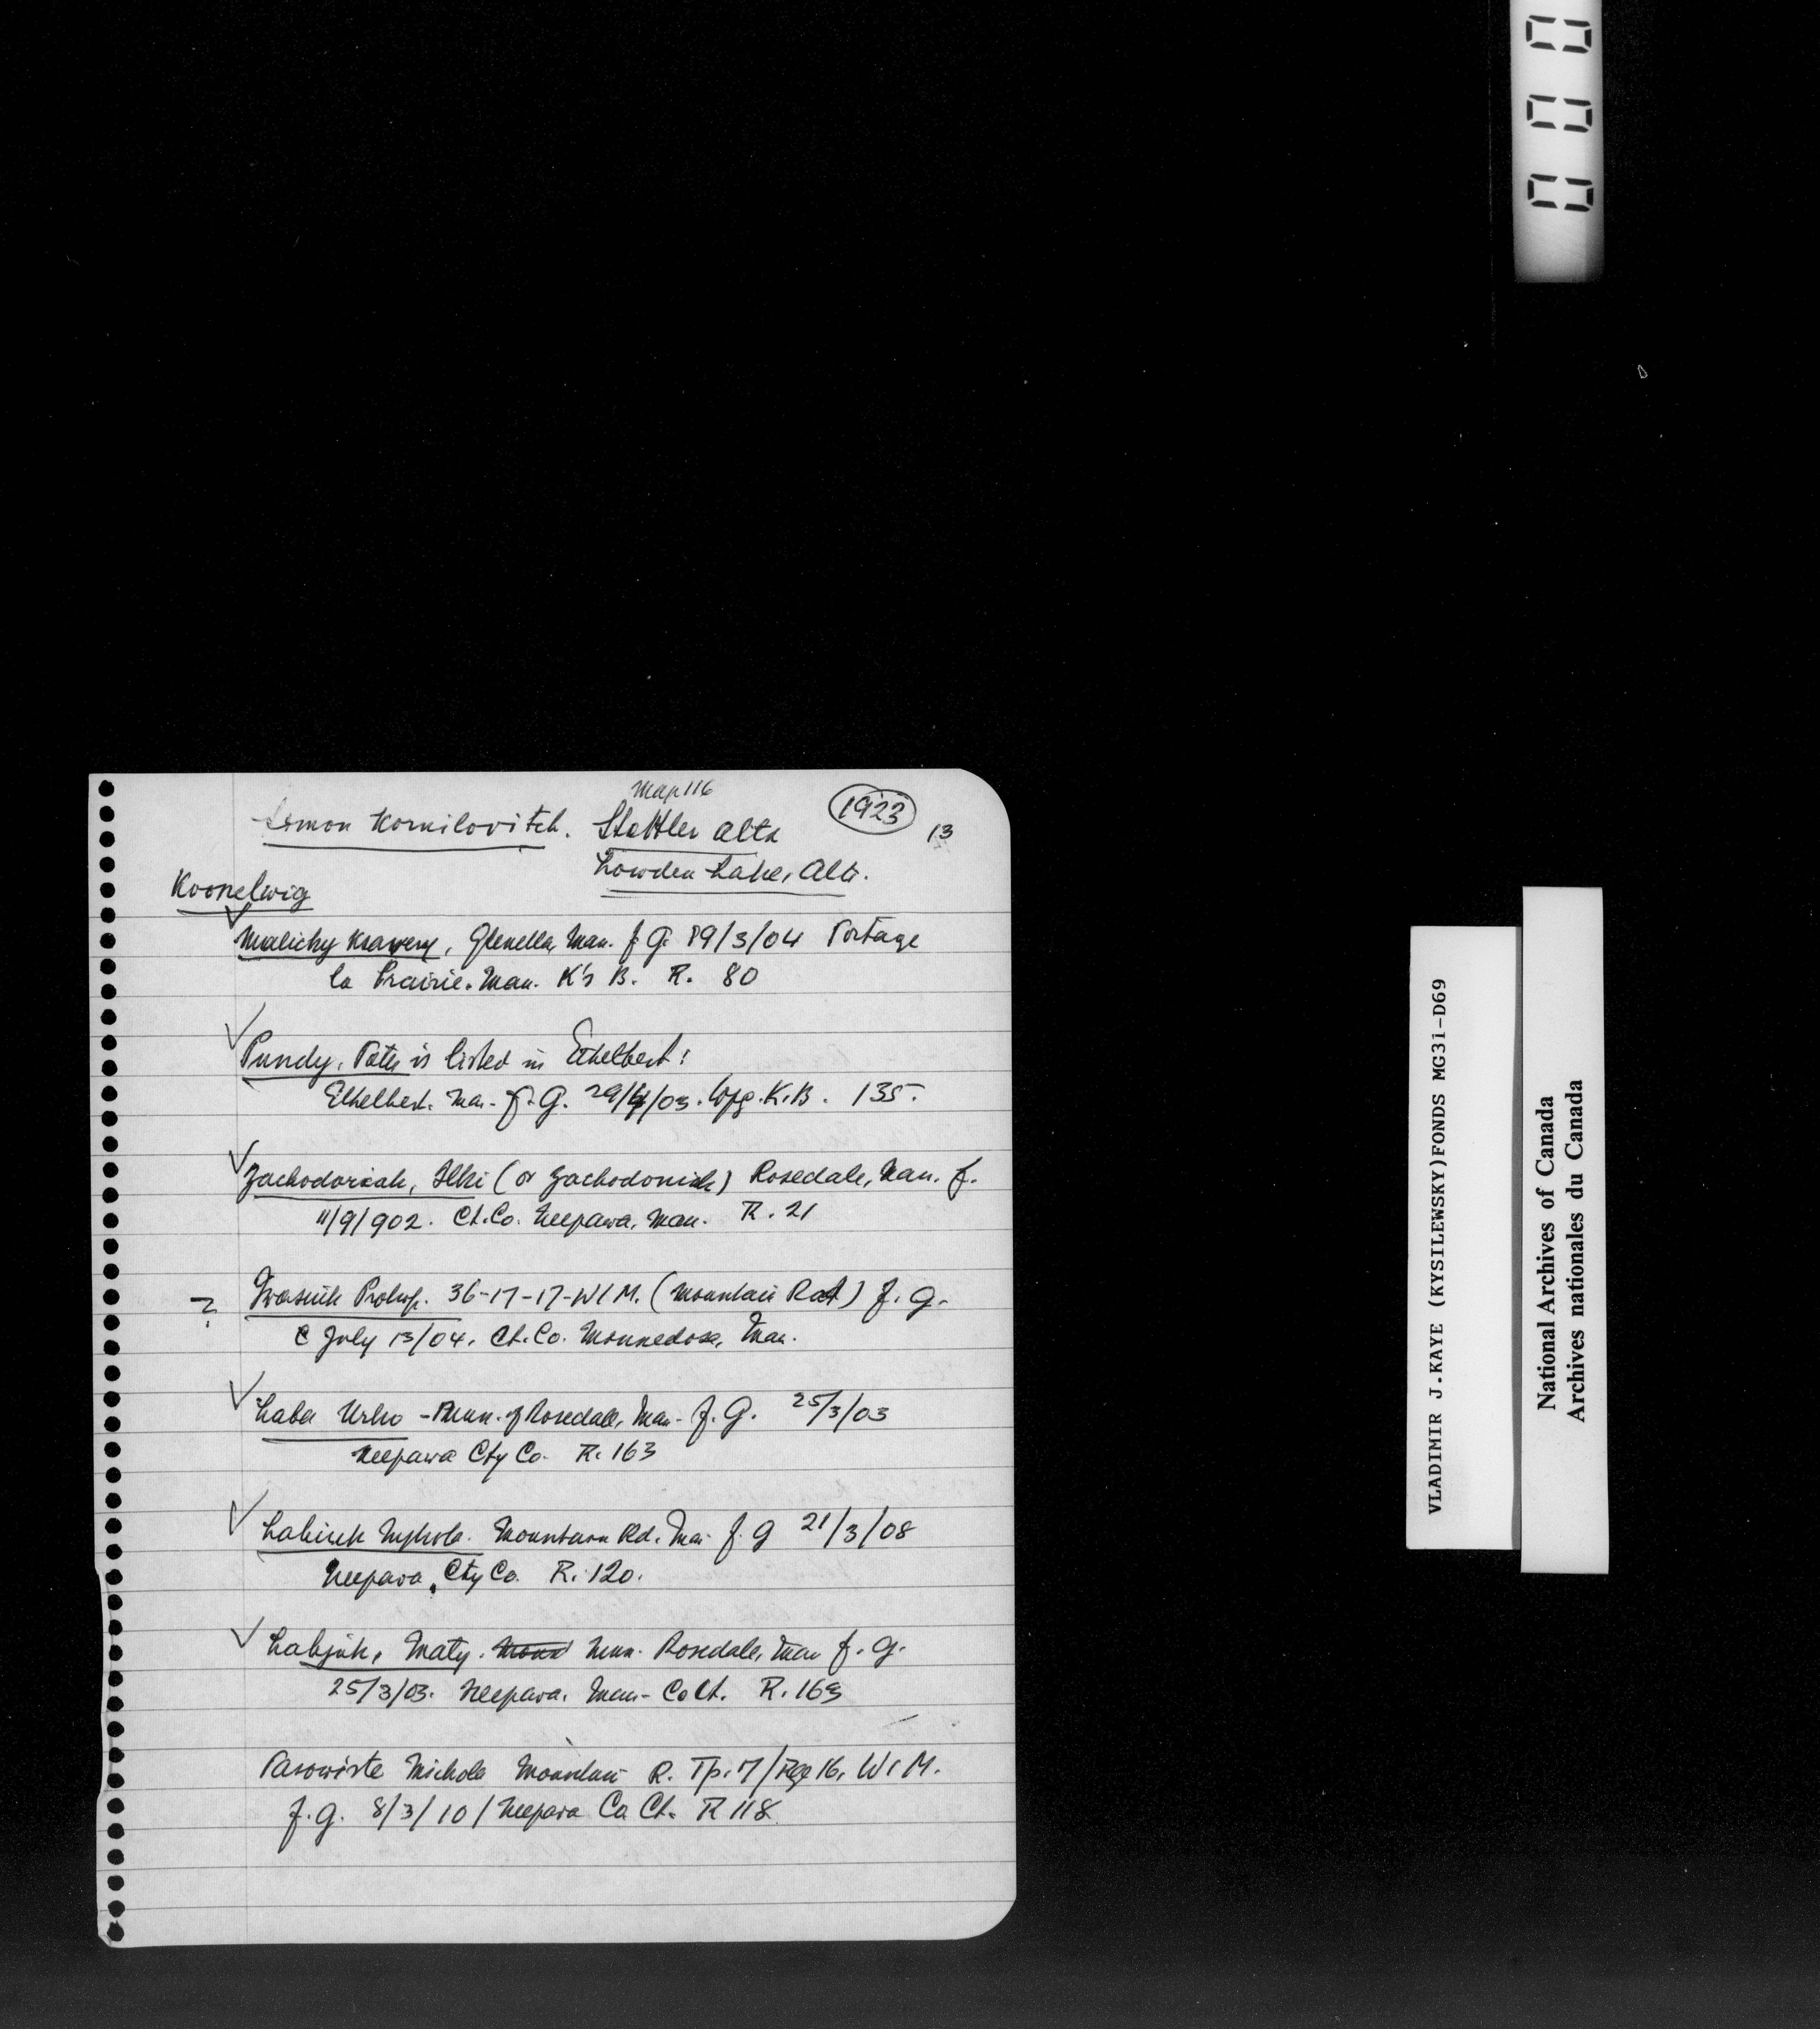 Map 116
Simon Kornilovitch. Stettler Alta 1923 13
Lowden Lake, Alta.
Koonelwig
✓ Malichy Ksawery, Glenella, Man. f. G. 19/3/04 Portage
la Prairie. Man. K's B. R. 80
✓ Pundy, Pater is listed in Ethelbert:
Ethelbert. Man. f. G. 29/4/03. Wpg. K.B. 135.
✓ Zachodoriak, Ilki (or Zachodoniak) Rosedale, Man. f.
11/9/902. Ct. Co. Neepawa, Man. R. 21
? Iwasiuk Prokop. 36-17-17-W1M. (Mountain Rd) f. g.
July 13/04. Ct. Co. Minnedosa, Man.
✓ Laba Urko - Mun. of Rosedale, Man. f. G. 25/3/03
Neepawa Cty Co. R. 163
✓ Labiuk Mykola. Mountain Rd. Man f. g 21/3/08
Neepawa, Cty Co. R. 120.
✓ Labjuk, Maty. Mun. Rosedale, Man f. g.
25/3/03. Neepawa. Man- Co Ct. R. 163
Pasowiste Nichola Mountain R. Tp. 17/Rge 16, W1M.
f. g. 8/3/10 / Neepawa Co. Ct. R 118
VLADIMIR J.KAYE (KYSILEWSKY)FONDS MG31-D69
National Archives of Canada
Archives nationales du Canada
000